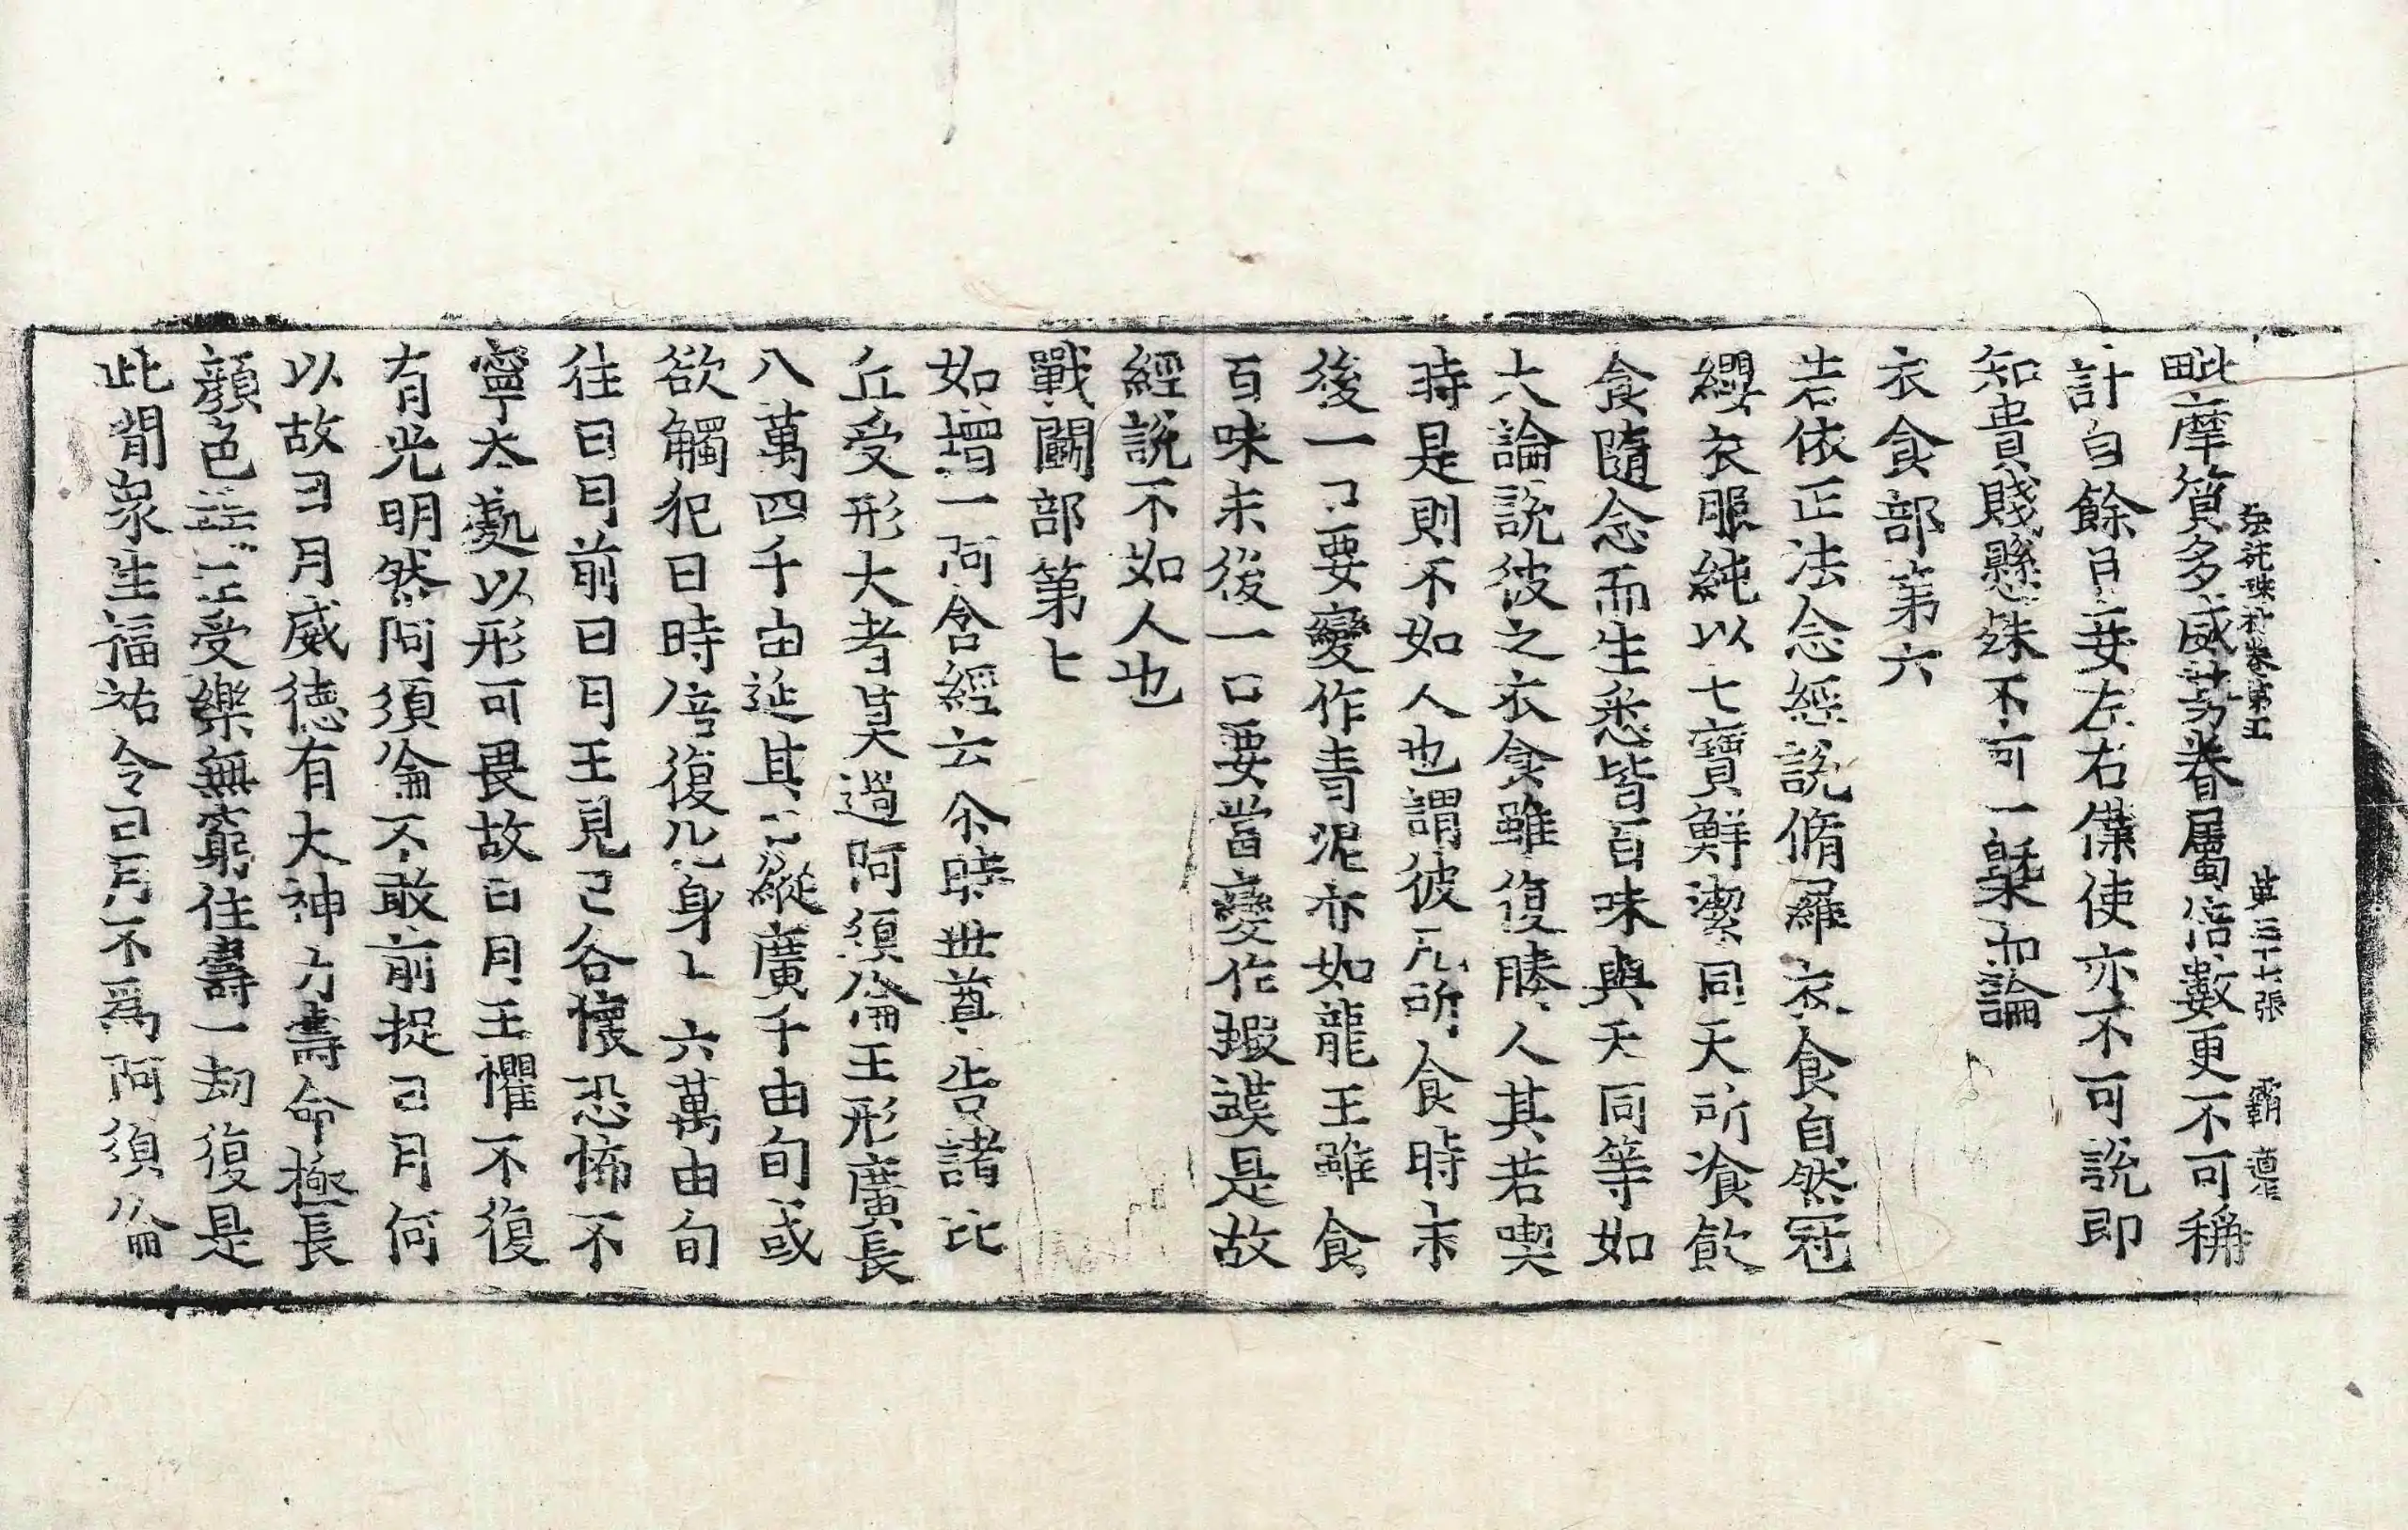 法苑珠林卷第五 第三十七張 覇 遵
毗摩質多威勢眷屬倍數更不可稱
計自餘臣妾左右僕使亦不可說即
知貴賤懸殊不可一槩而論
衣食部第六
若依正法念經說脩羅衣食自然冠
纓衣服純以七寶鮮潔同天所飡飮
食隨念而生悉皆百味與天同等如
大論說彼之衣食雖復勝人其若喫
時是則不如人也謂彼凡所食時末
後一口要變作青泥亦如龍王雖食
百味末後一口要當變作蝦蟇是故
經說不如人也
戰鬪部第七
如增一阿含經云尒時世尊告諸比
丘受形大者莫過阿須倫王形廣長
八萬四千由延其口縱廣千由旬或
欲觸犯日時倍復化身十六萬由旬
往日月前日月王見已各懷恐怖不
寧本處以形可畏故日月王懼不復
有光明然阿須倫不敢前捉日月何
以故日月威德有大神力壽命極長
顏色端正受樂無窮住壽一劫復是
此閒衆生福祐令日月不爲阿須倫